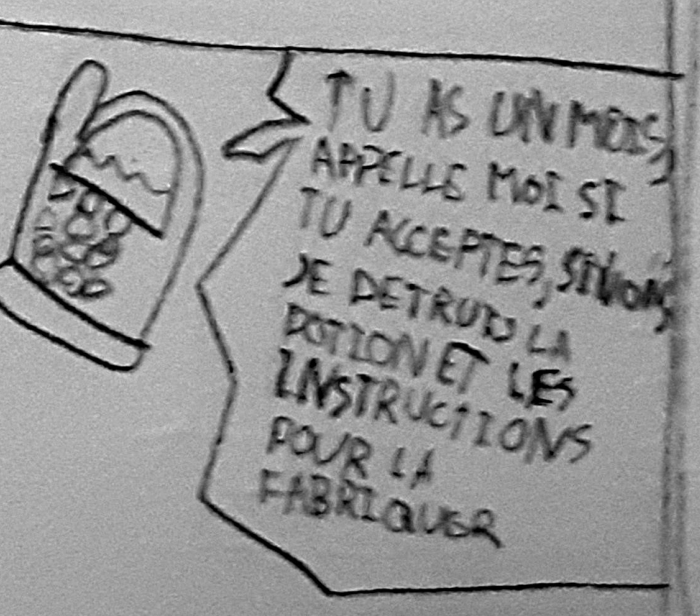 TU AS UN MOIS,
APPELLE MOI SI
TU ACCEPTES, SINON,
JE DETRUIS LA
POTION ET LES
INSTRUCTIONS
POUR LA
FABRIQUER